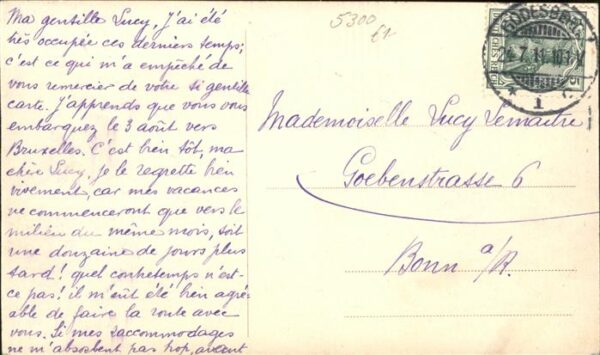 Ma gentille Lucy, j'ai été
très occupée ces derniers temps;
c'est ce qui m'a empêché de
vous remercier de votre si gentille
carte. J'apprends que vous vous
embarquez le 3 août vers
Bruxelles. C'est bien tôt, ma
chère Lucy, je le regrette bien
vivement, car mes vacances
ne commenceront que vers le
milieu du même mois, soit
une douzaine de jours plus
tard! quel contretemps n'est-
ce pas! il m'eût été bien agré-
able de faire la route avec
vous. Si mes raccommodages
ne m'absorbent pas trop, avant
5300
GODESBERG
7.11.10
1
5
Mademoiselle Lucy Lemaitre
Goebenstrasse 6
Bonn a/R.